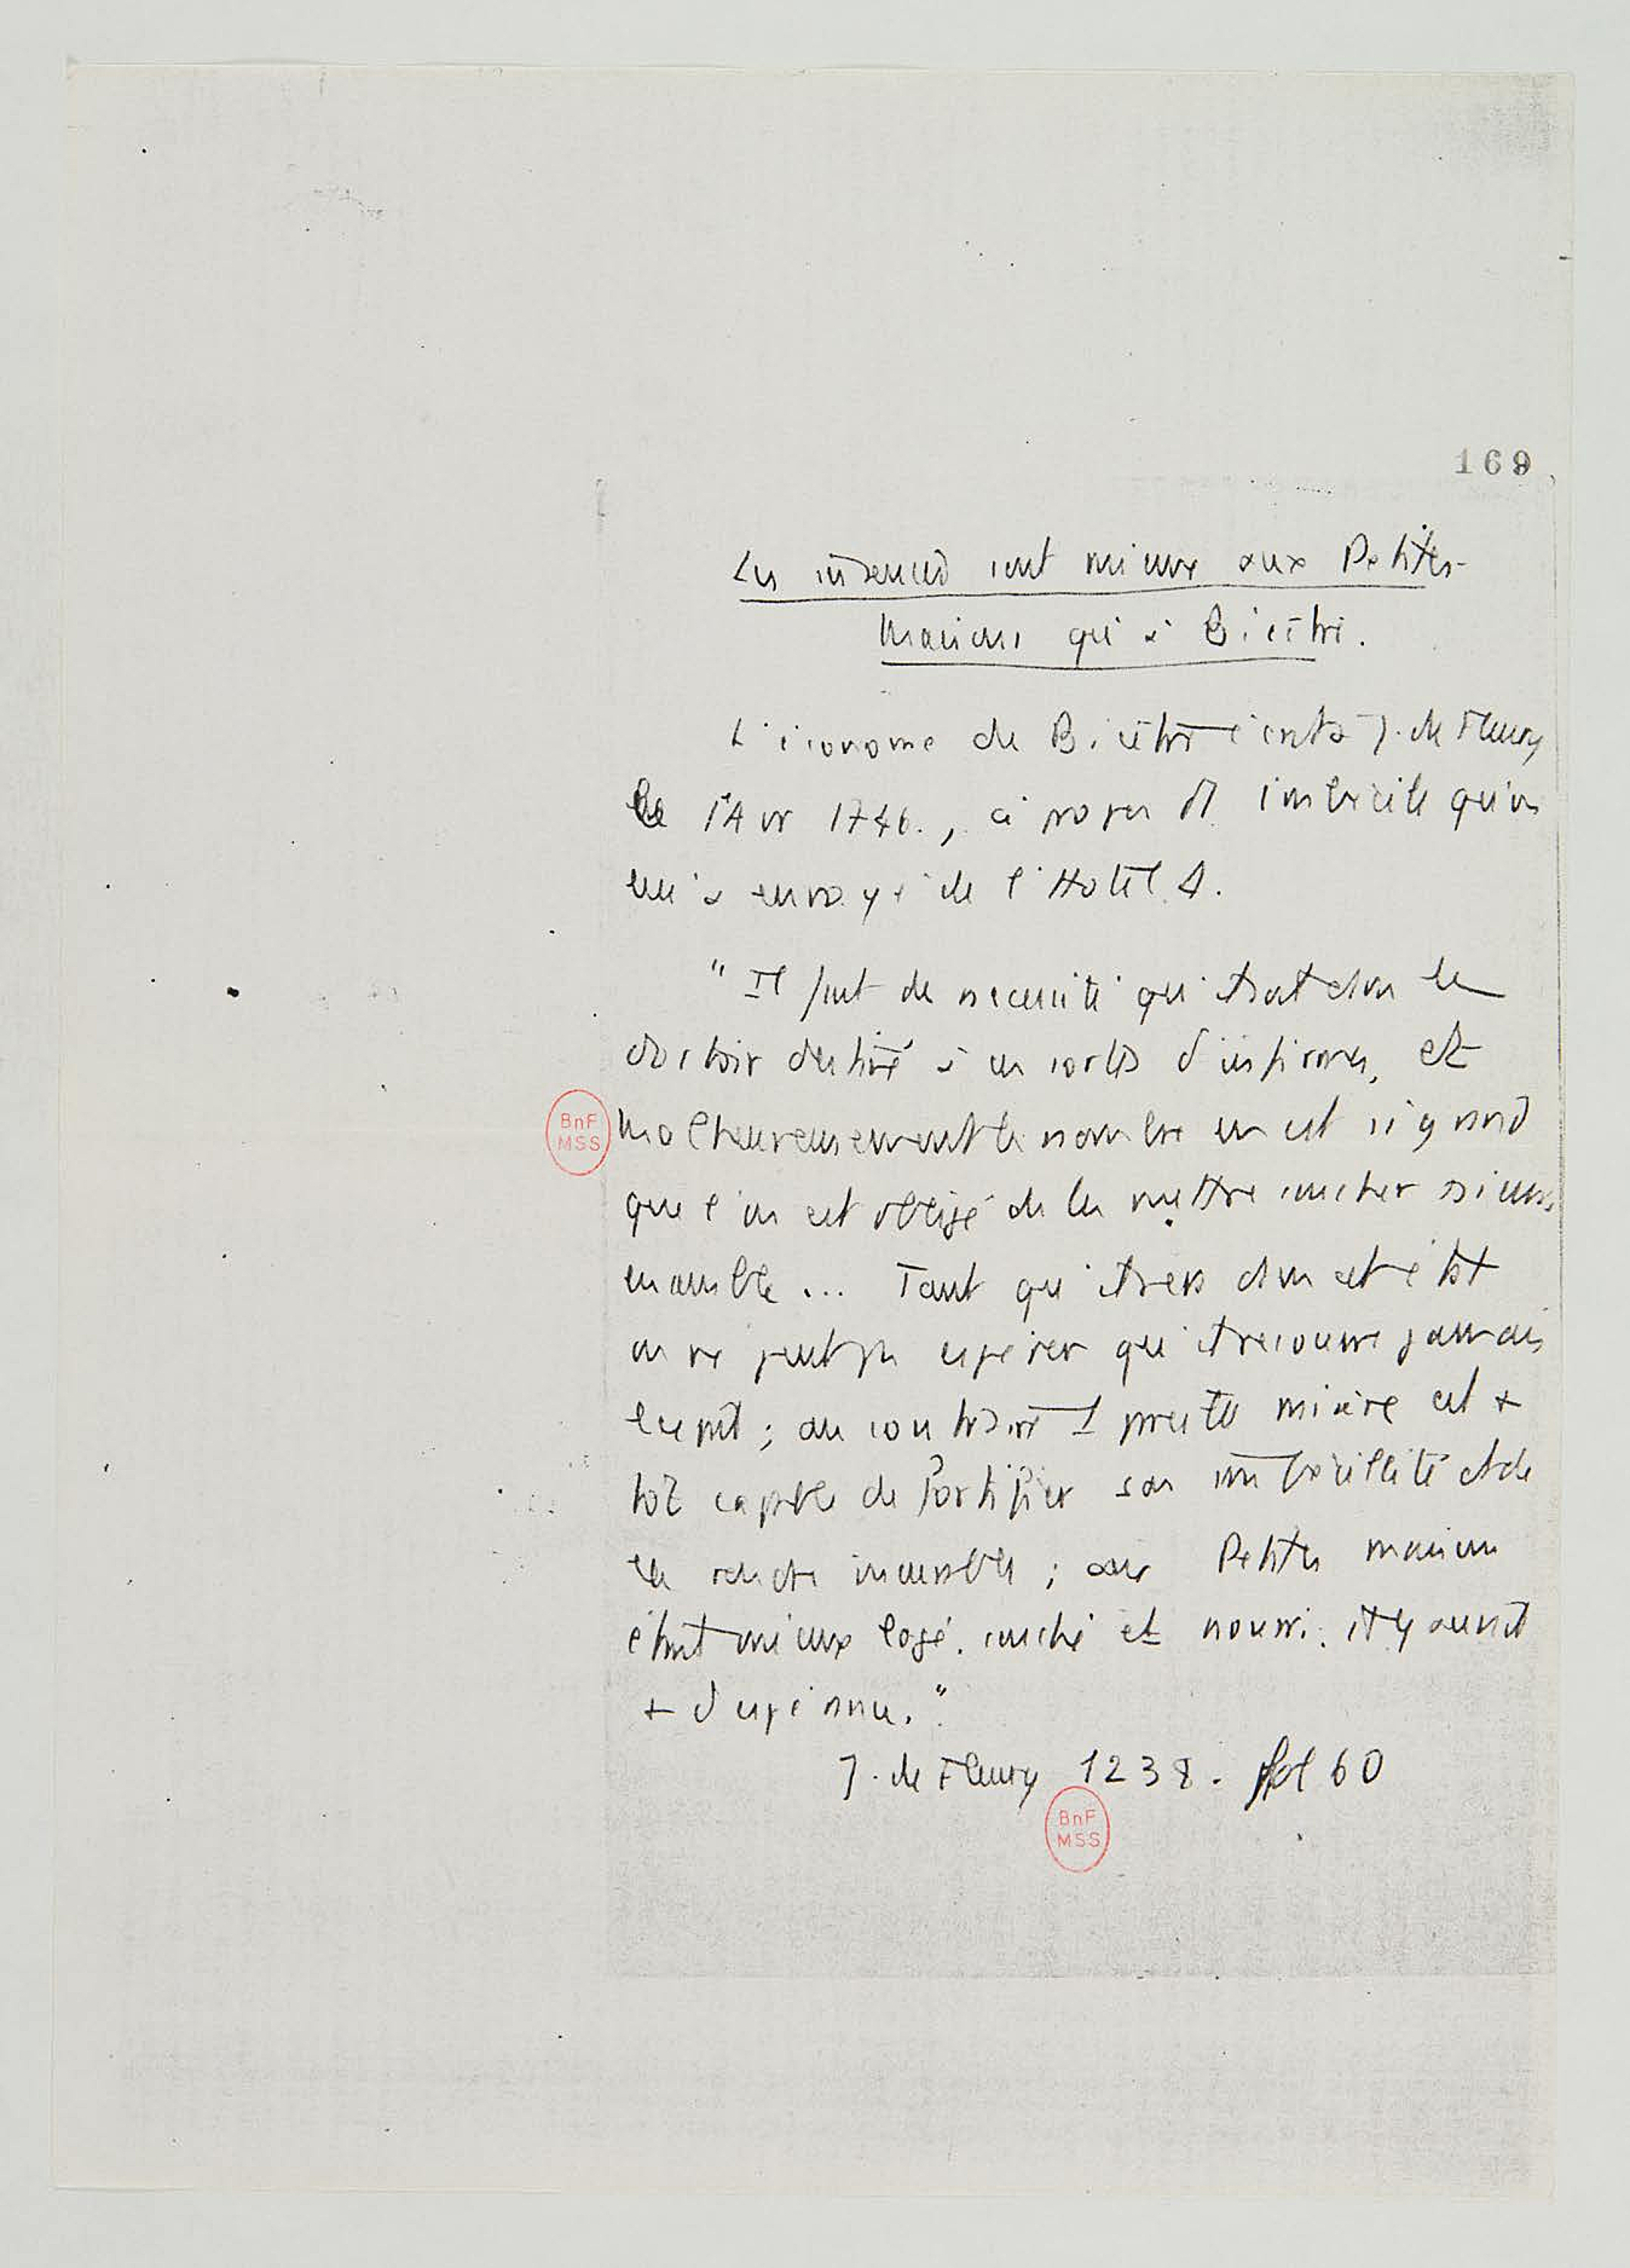 169
Les insensés sont mieux aux Petites-
Maisons qu'à Bicêtre.
L'économe de Bicêtre écrit à J. de Fleury
le 1 Avr 1746., à propos d'1 imbécile qu'on
lui a envoyé de l'Hotel D.
" Il faut de nécessité qu'il soit dans le
dortoir destiné à ces sortes d'infirmes, et
BnF
MSS
malheureusement le nombre en est si grand
que l'on est obligé de les mettre coucher
ensemble ... Tant qu'il sera dans cet état
on ne peut pas espérer qu'il recouvre jamais
l'esprit ; au contraire 1 pareille misère est +
tôt capable de fortifier son imbécillité et de
la rendre incurable ; aux Petites maisons
étant mieux logé, couché et nourri, il y aurait
+ d'espérance. "
J. de Fleury 1238. fol 60
BnF
MSS